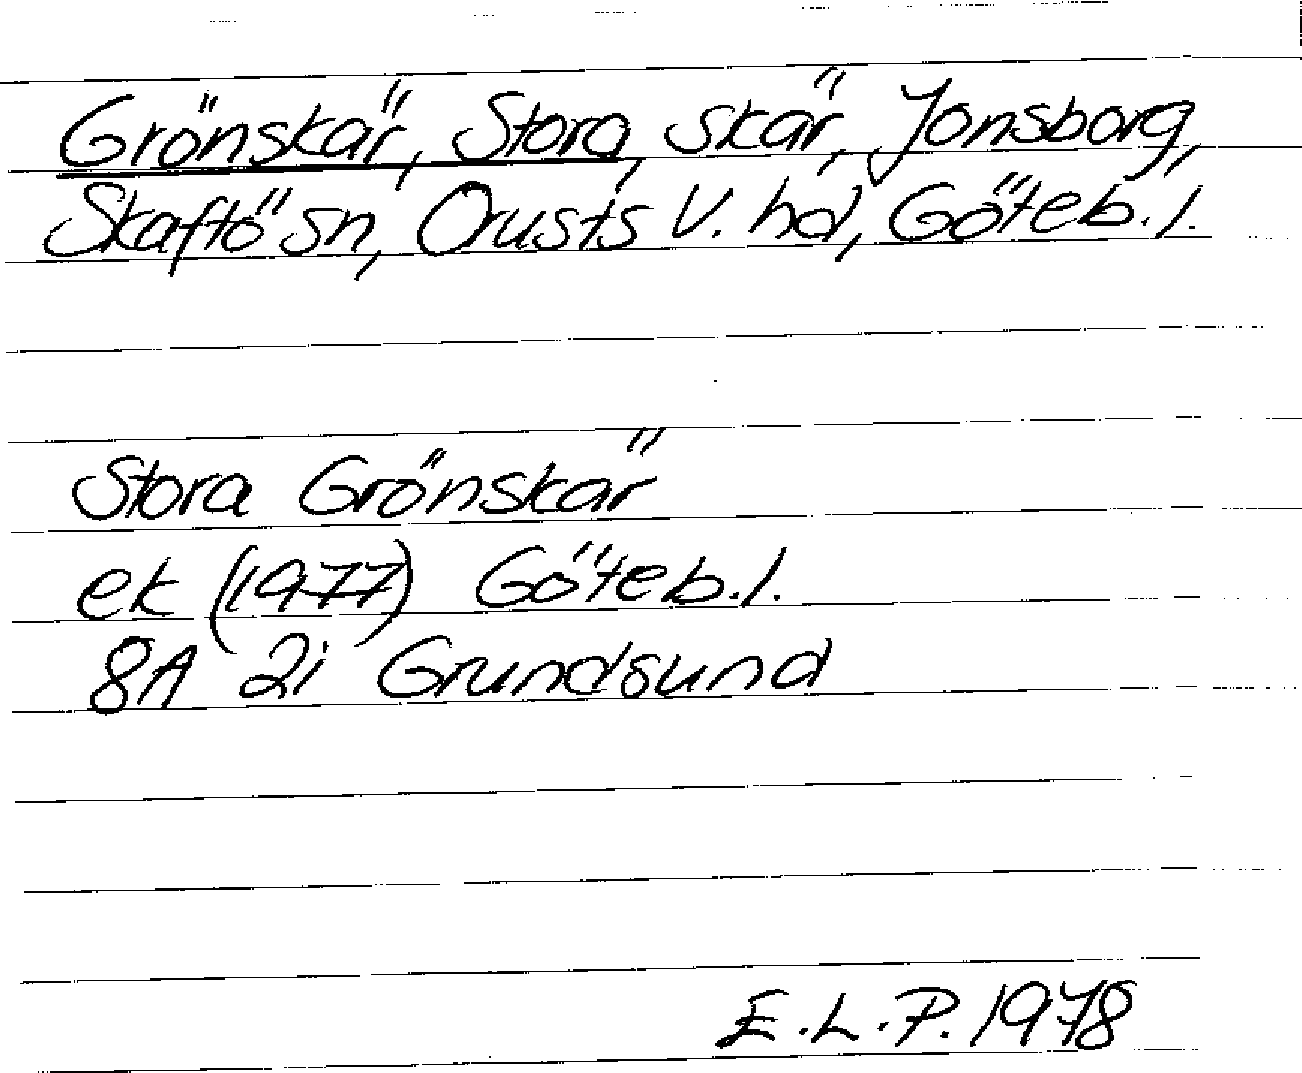 Grönskär, Stora, skär, Jonsborg,
Skaftö sn, Orusts V. hd, Göteb. l.
Stora Grönskär
ek (1977) Göteb. l.
8A 2i Grundsund
E.L.P. 1978